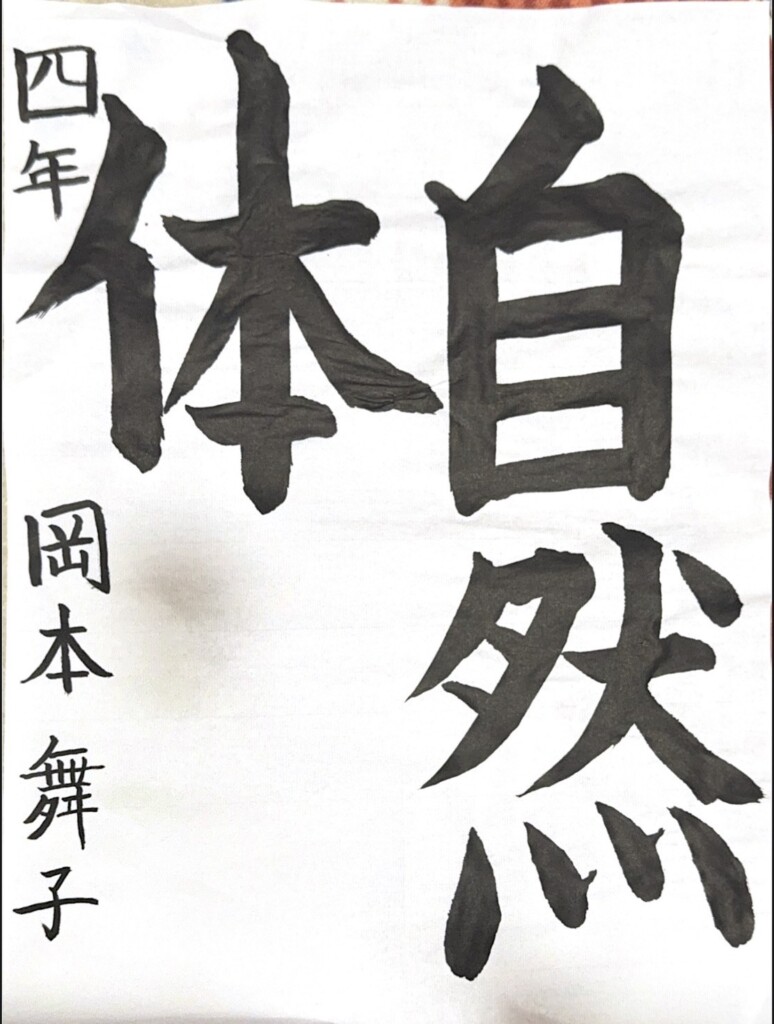 自然
体
四年 岡本 舞子